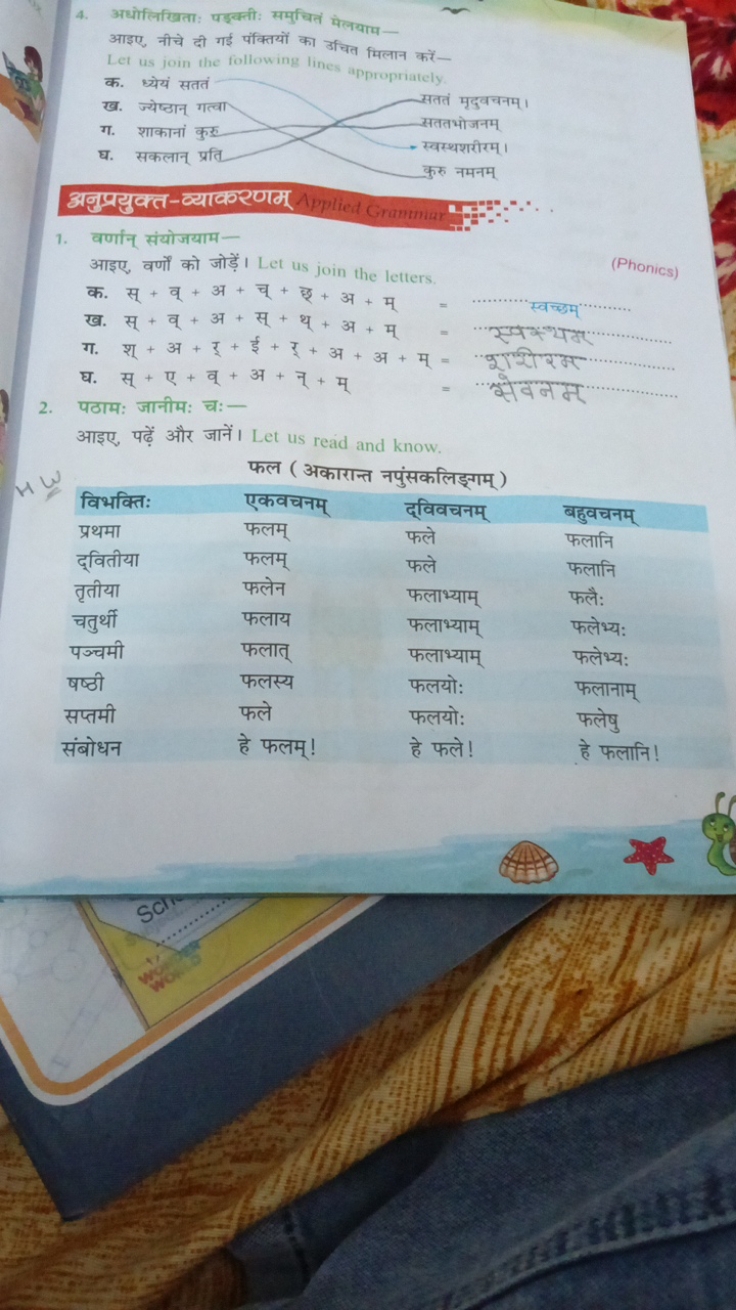 4. अधोलिखिताः पङ्क्तीः समुचितं मेलयाम—
आइए, नीचे दी गई पंक्तियों का उचित मिलान करें—
Let us join the following lines appropriately.
क. ध्येयं सततं सततं मृदुवचनम्।
ख. ज्येष्ठान् गत्वा सततभोजनम्
ग. शाकानां कुरु स्वस्थशरीरम्।
घ. सकलान् प्रति कुरु नमनम्
अनुप्रयुक्त-व्याकरणम् Applied Grammar
1. वर्णान् संयोजयाम—
आइए, वर्णों को जोड़ें। Let us join the letters. (Phonics)
क. स् + व् + अ + च् + छ् + अ + म् = स्वच्छम्
ख. स् + व् + अ + स् + थ् + अ + म् =
ग. श् + अ + र् + ई + र् + अ + अ + म् = शरीरम
घ. स् + ए + व् + अ + न् + म् = सेवनम
2. पठामः जानीमः चः—
आइए, पढ़ें और जानें। Let us read and know.
HW
फल (अकारान्त नपुंसकलिङ्गम्)
विभक्तिः एकवचनम् द्विवचनम् बहुवचनम्
प्रथमा फलम् फले फलानि
द्वितीया फलम् फले फलानि
तृतीया फलेन फलाभ्याम् फलैः
चतुर्थी फलाय फलाभ्याम् फलेभ्यः
पञ्चमी फलात् फलाभ्याम् फलेभ्यः
षष्ठी फलस्य फलयोः फलानाम्
सप्तमी फले फलयोः फलेषु
संबोधन हे फलम्! हे फले! हे फलानि!